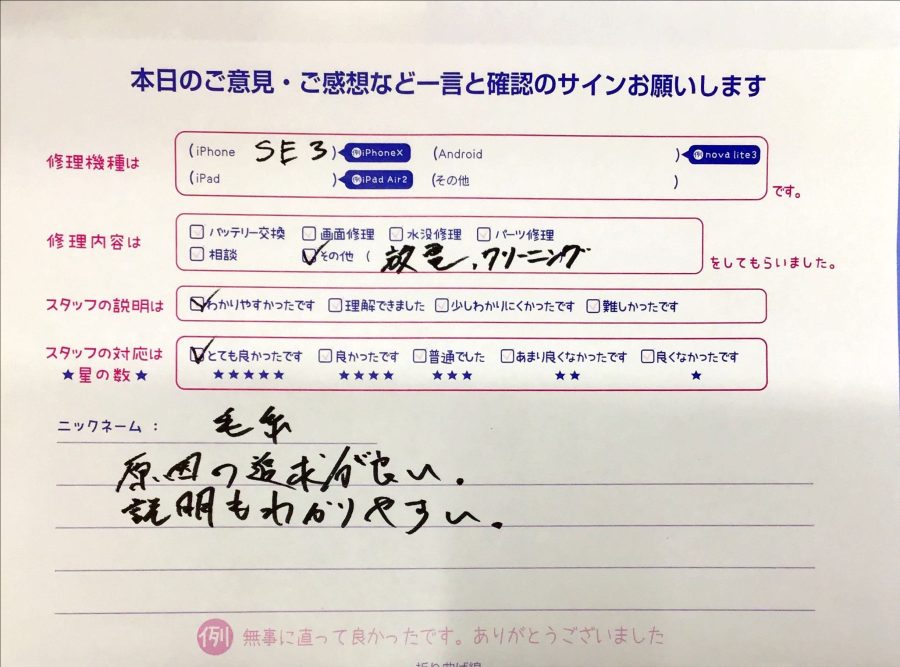 本日のご意見・ご感想など一言と確認のサインお願いします
修理機種は (iPhone SE 3) 例iPhoneX (Android ) 例nova lite3
(iPad ) 例iPad Air2 (その他 ) です。
修理内容は バッテリー交換 画面修理 水没修理 パーツ修理
相談 その他 ( 放電、クリーニング をしてもらいました。
スタッフの説明は わかりやすかったです 理解できました 少しわかりにくかったです 難しかったです
スタッフの対応は とても良かったです 良かったです 普通でした あまり良くなかったです 良くなかったです
★星の数★ ★★★★★ ★★★★ ★★★ ★★ ★
ニックネーム: 毛糸
原因の追求が良い。
説明もわかりやすい。
例 無事に直って良かったです。ありがとうございました